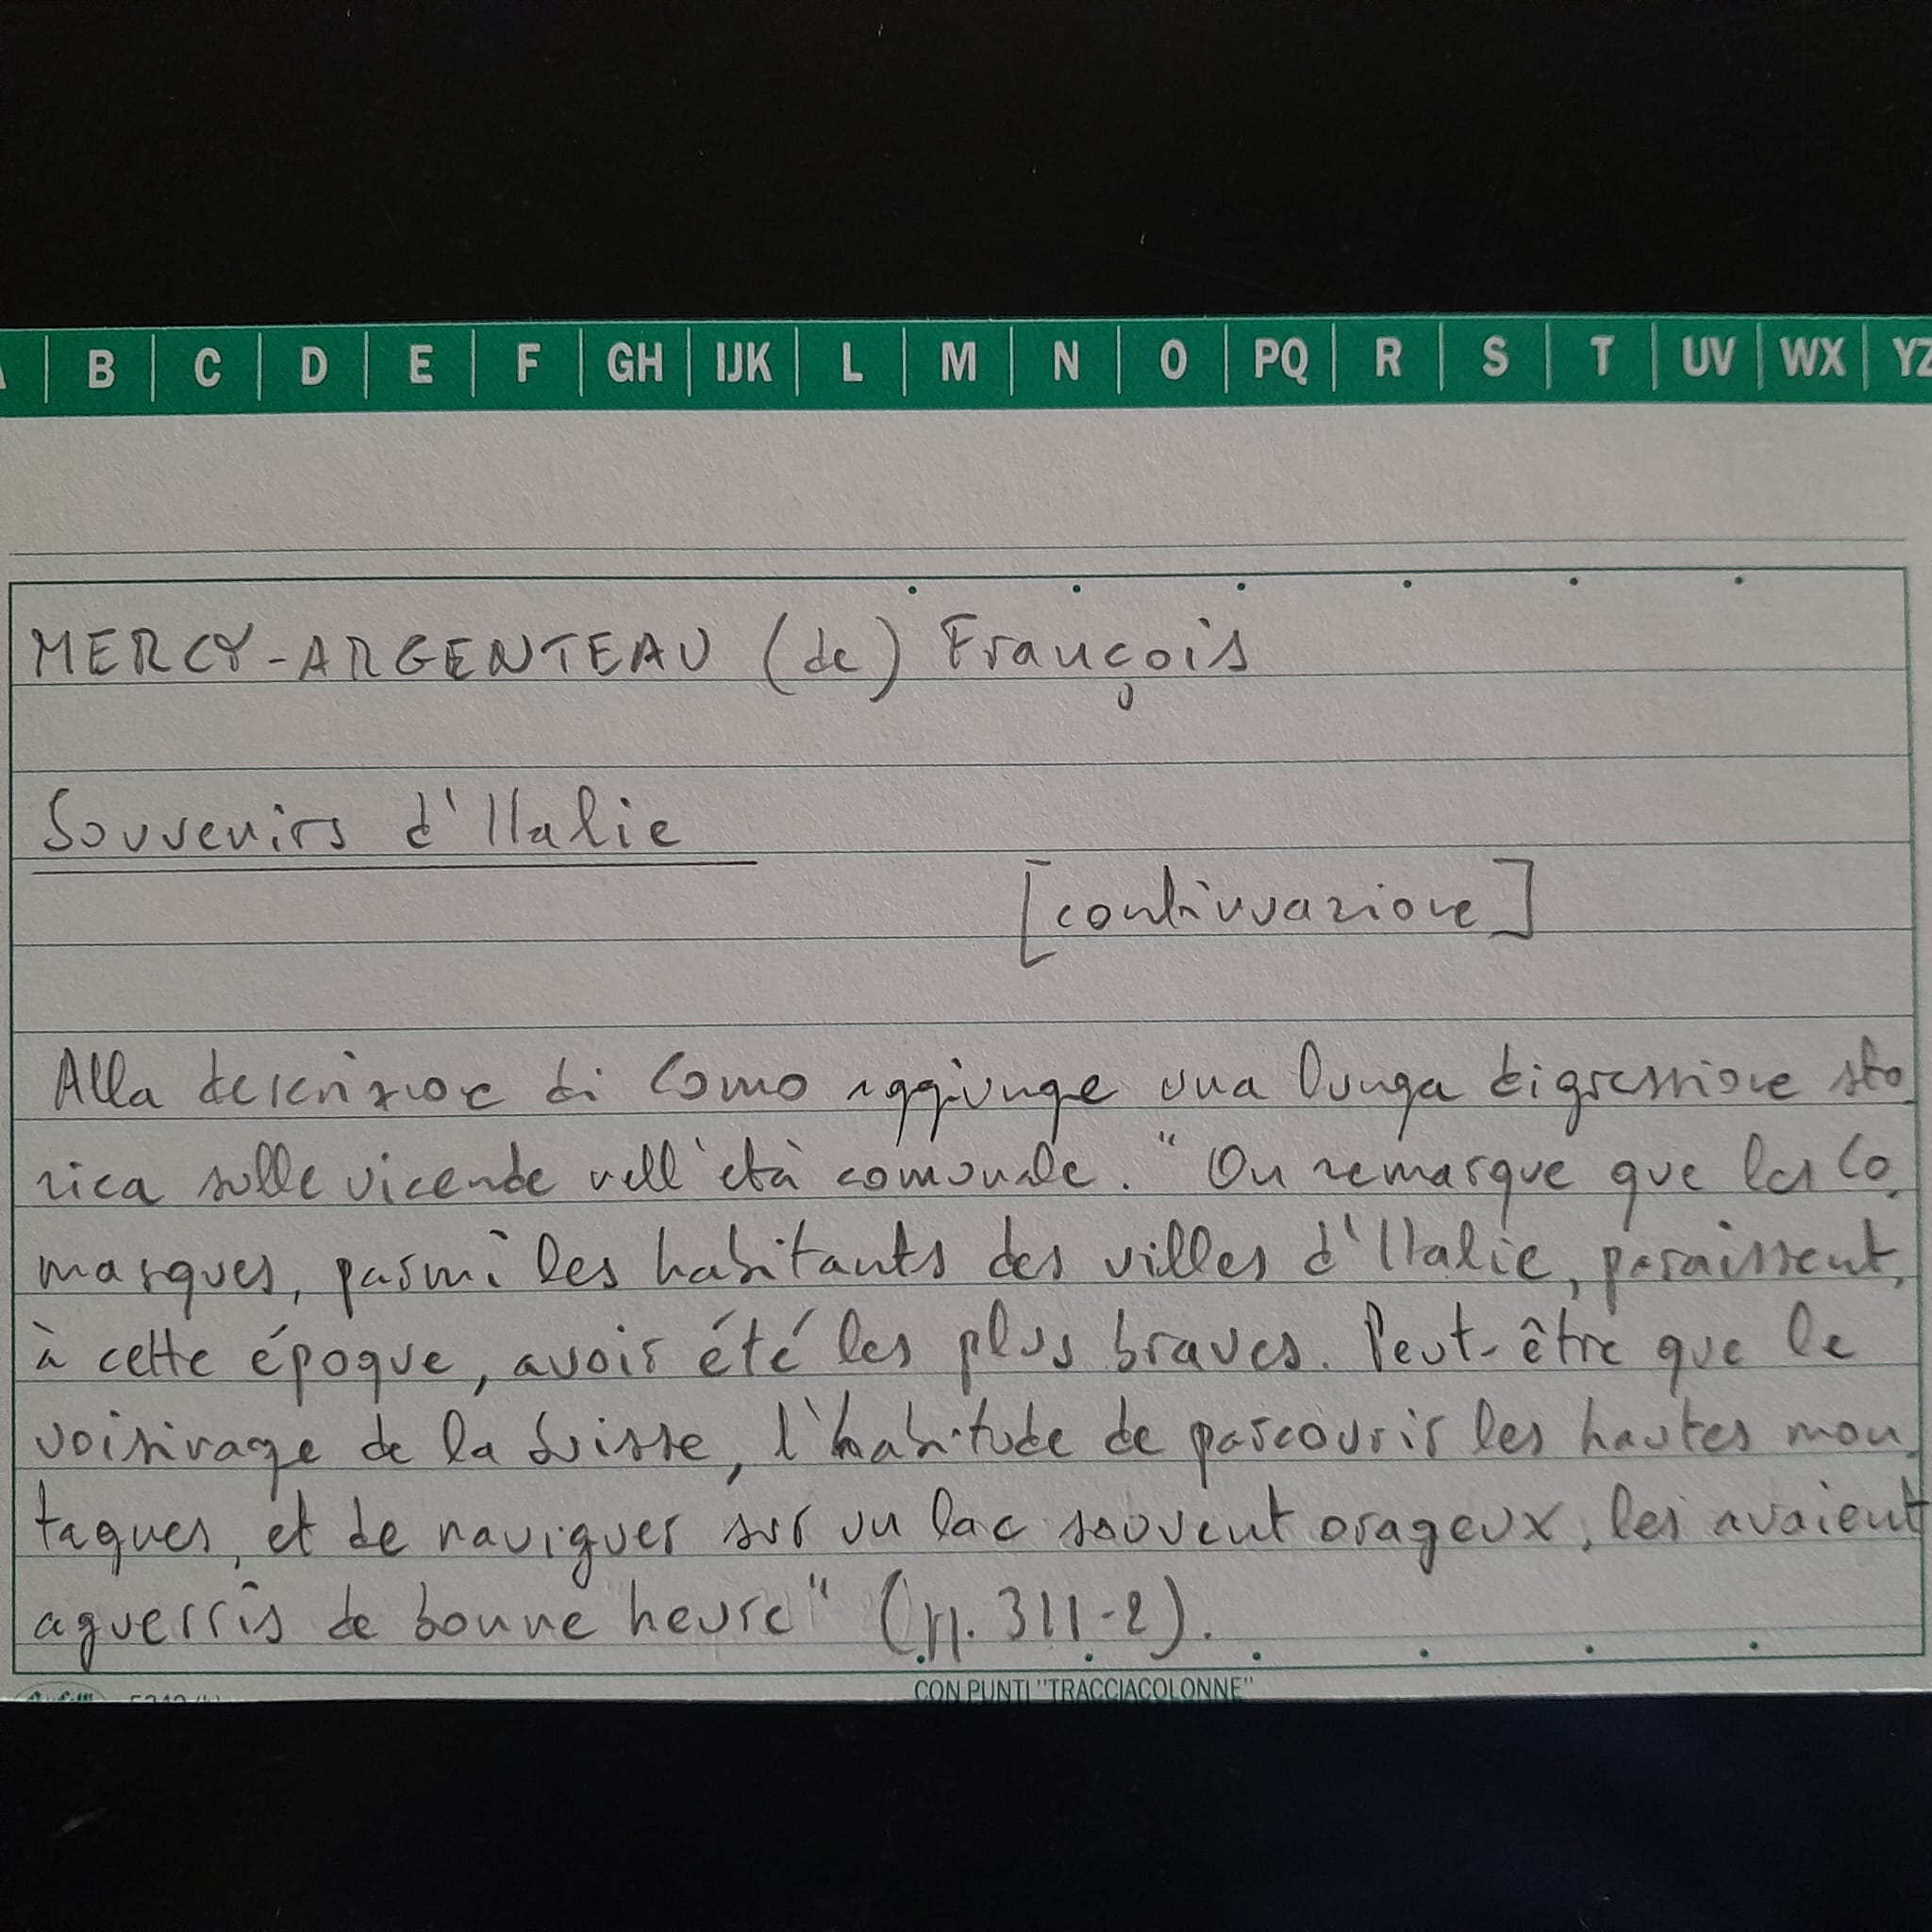 B C D E F GH IJK L M N O PQ R S T UV WX YZ
MERCY-ARGENTEAU (de) François
Souvenirs d'Italie
[continuazione]
Alla descrizione di Como aggiunge una lunga digressione sto
rica sulle vicende nell'età comunale. "On remarque que les Co
masques, parmi les habitants des villes d'Italie, paraissent,
à cette époque, avoir été les plus braves. Peut-être que le
voisinage de la Suisse, l'habitude de parcourir les hautes mon
tagnes, et de naviguer sur un lac souvent orageux, les avaient
aguerris de bonne heure" (pp. 311-2).
CON PUNTI "TRACCIACOLONNE"